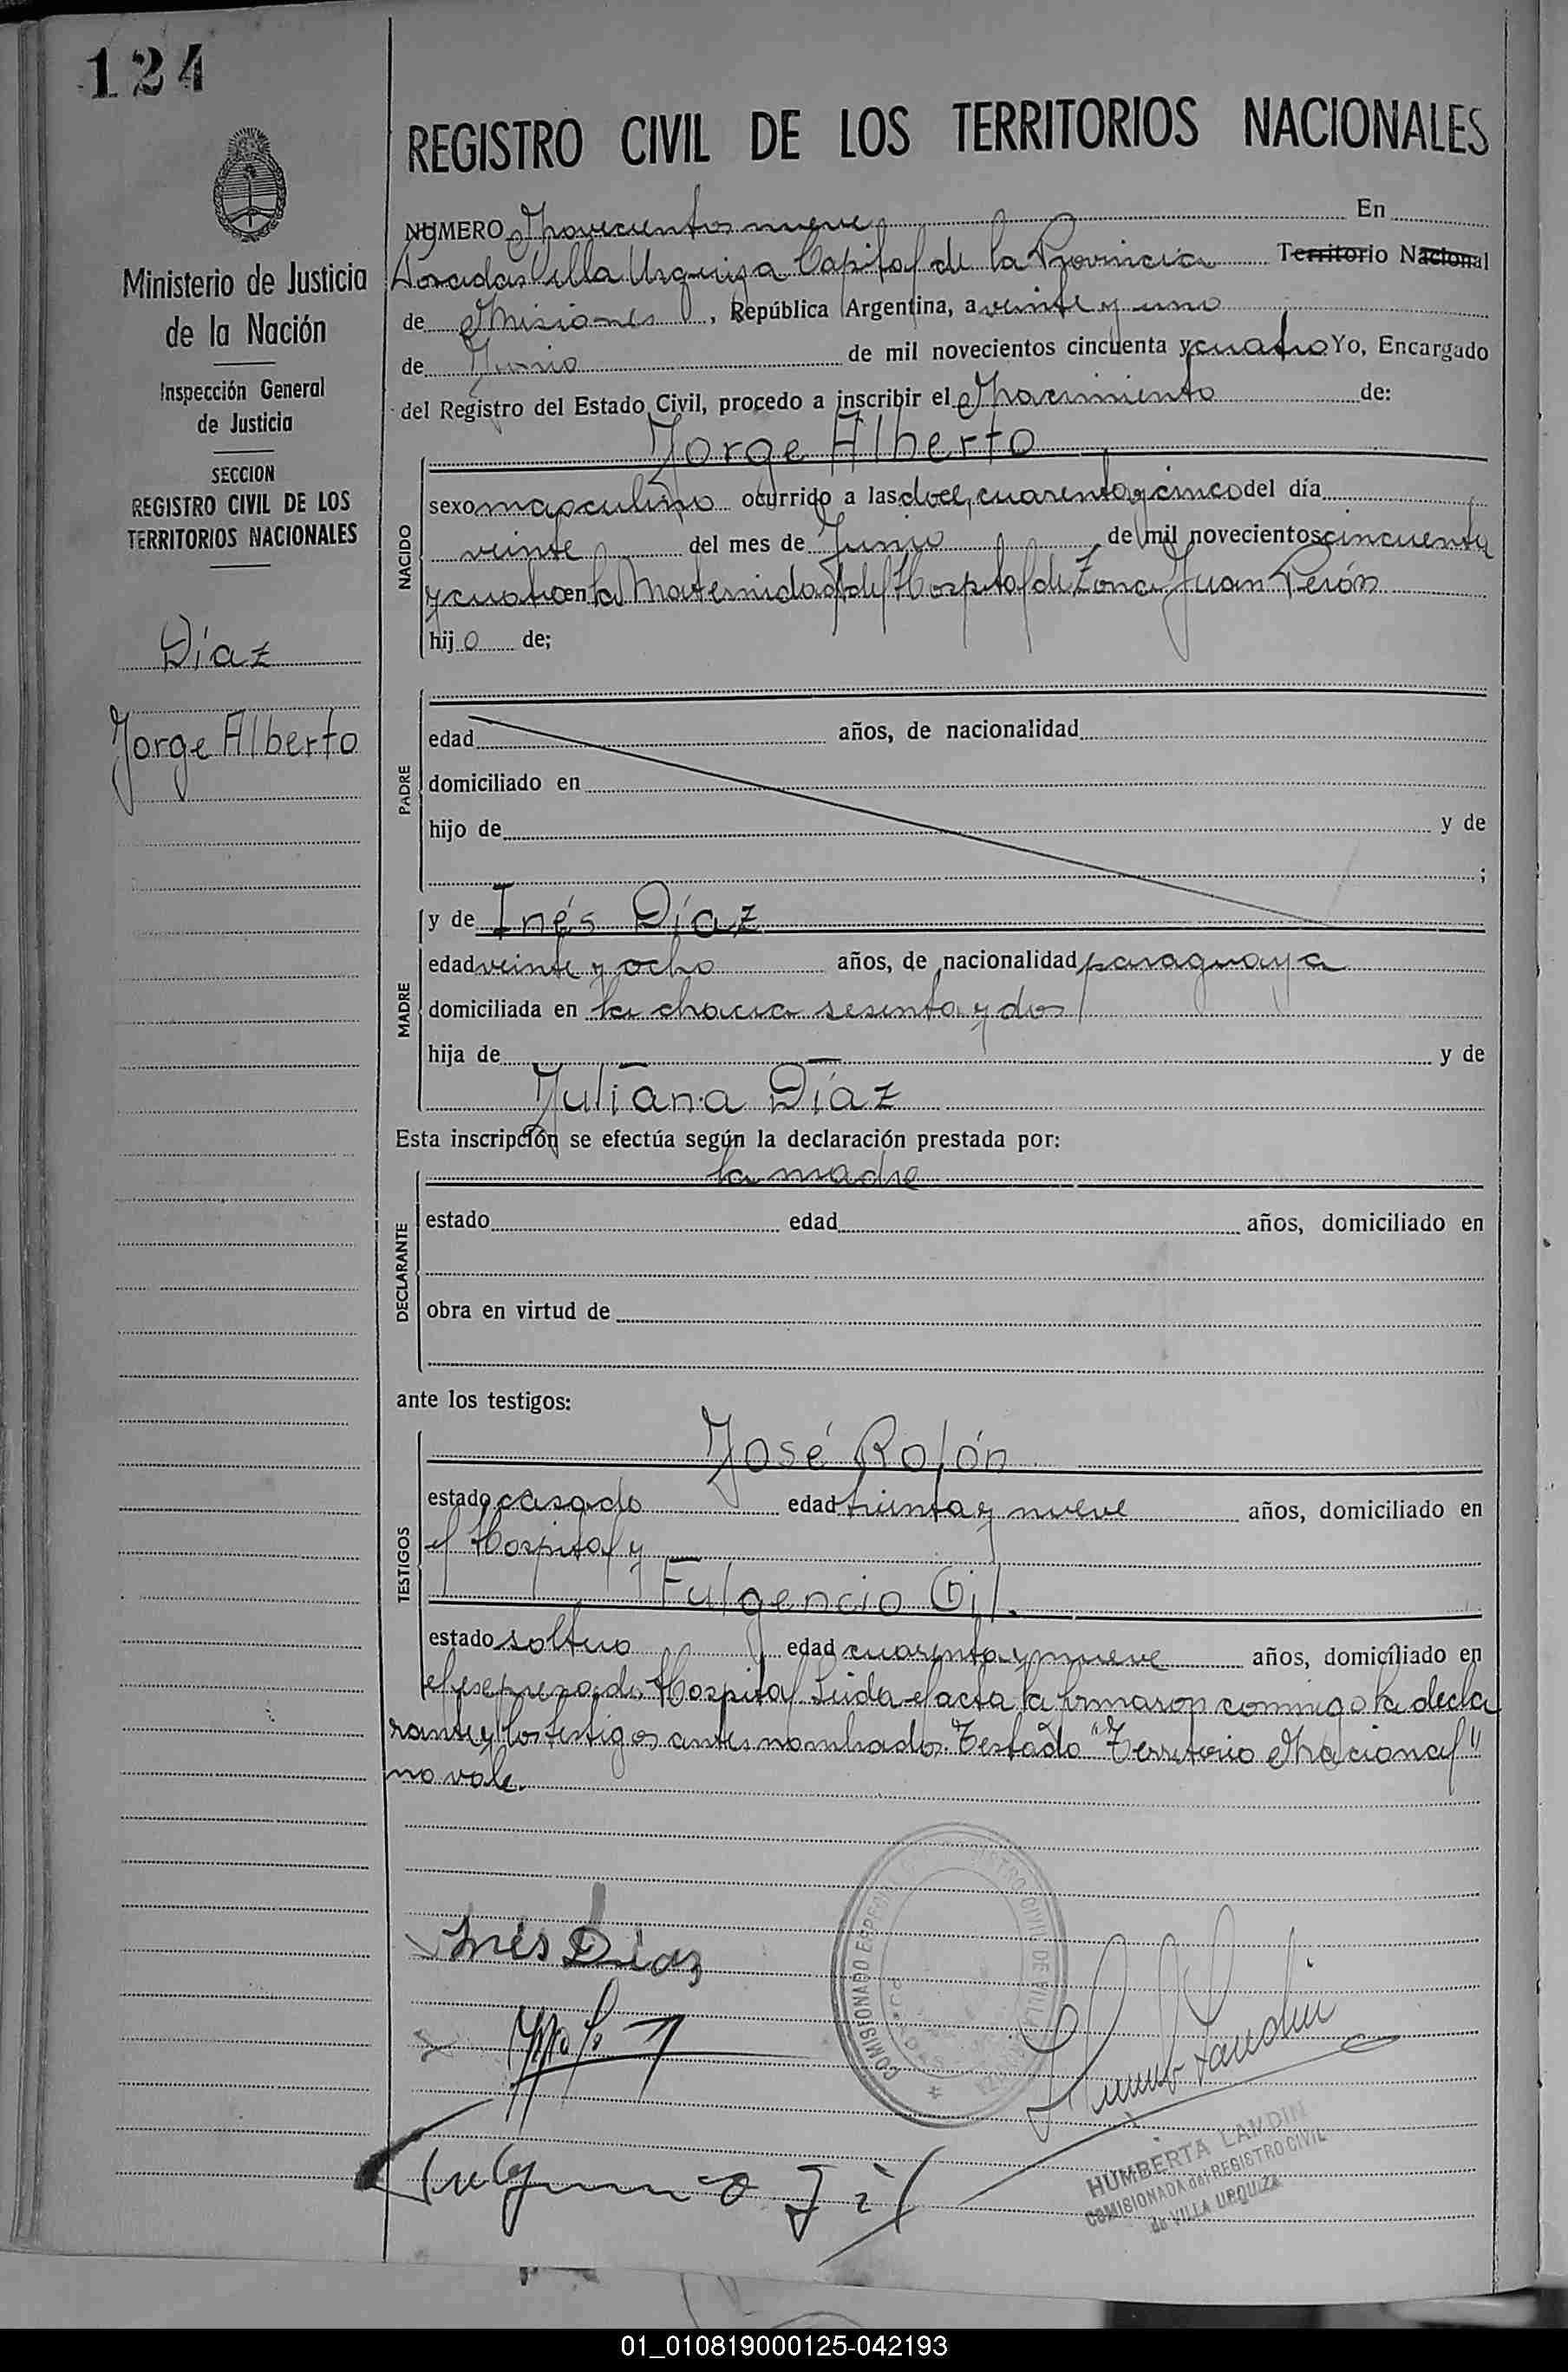 124
REGISTRO CIVIL DE LOS TERRITORIOS NACIONALES
Ministerio de Justicia
de la Nación
Inspección General
de Justicia
SECCION
REGISTRO CIVIL DE LOS
TERRITORIOS NACIONALES
Díaz
Jorge Alberto
NUMERO Novecientos nueve En
Posadas Villa Urquiza Capital de la Provincia Territorio Nacional
de Misiones, República Argentina, a veinte y uno
de Junio de mil novecientos cincuenta y cuatro Yo, Encargado
del Registro del Estado Civil, procedo a inscribir el Nacimiento de:
Jorge Alberto
NACIDO
sexo masculino ocurrido a las doce, cuarenta y cinco del día
veinte del mes de Junio de mil novecientos cincuenta
y cuatro en la Maternidad del Hospital de Zona Juan Perón
hijo de;
PADRE
edad años, de nacionalidad
domiciliado en
hijo de y de
;
y de Inés Díaz
MADRE
edad veinte y ocho años, de nacionalidad paraguaya
domiciliada en la chacra sesenta y dos
hija de — y de
Juliana Díaz
Esta inscripción se efectúa según la declaración prestada por:
la madre
DECLARANTE
estado edad años, domiciliado en
obra en virtud de
ante los testigos:
José Rolón
TESTIGOS
estado casado edad treinta y nueve años, domiciliado en
el Hospital y
Fulgencio Gil.
estado soltero edad cuarenta y nueve años, domiciliado en
el expresado Hospital Leida el acta la firmaron conmigo la decla
rante y los testigos antes nombrados. Testado "Territorio Nacional"
no vale.
Inés Diaz
Fulgencio Gil
COMISIONADO ESPECIAL REGISTRO CIVIL DE VILLA URQUIZA
HUMBERTA LANDIN
COMISIONADA del REGISTRO CIVIL
de VILLA URQUIZA
01_010819000125-042193